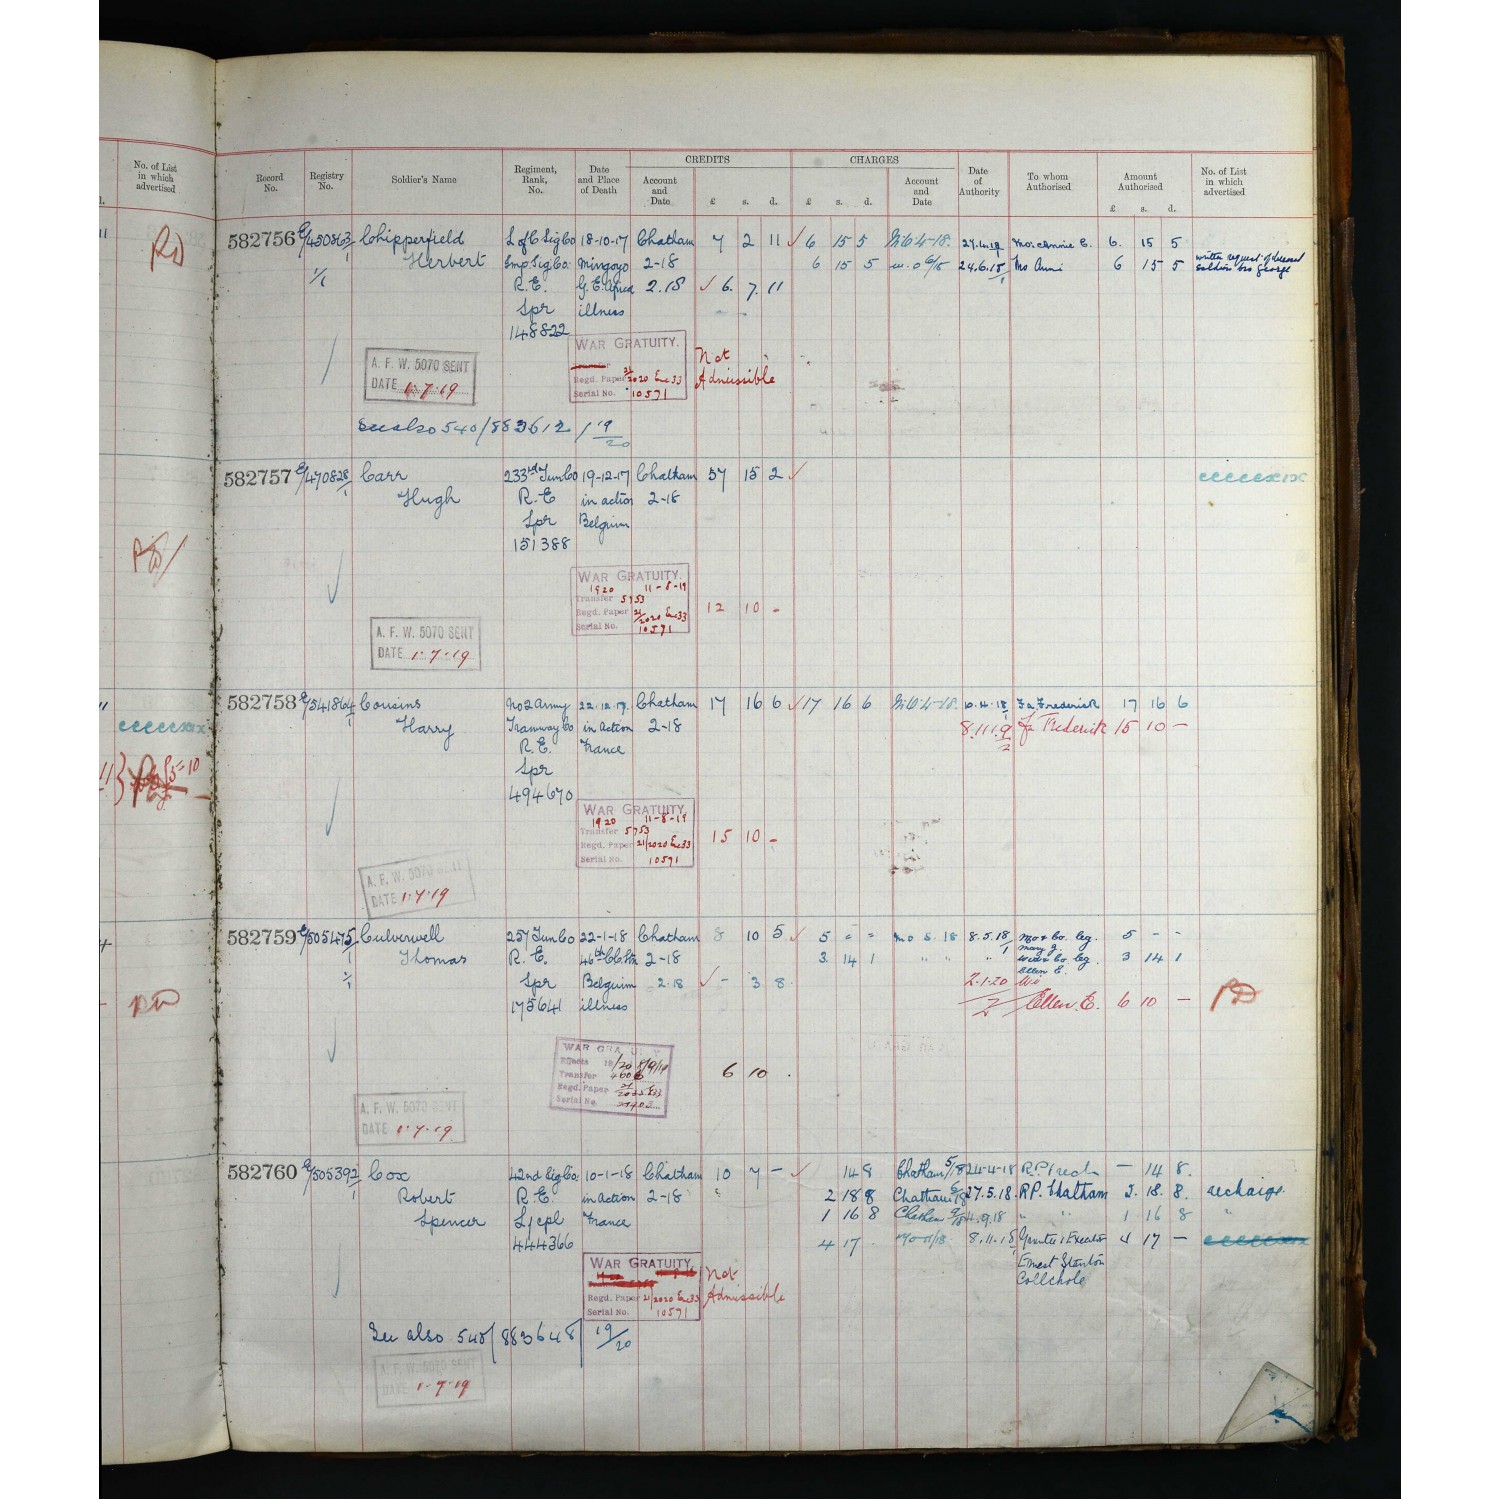 No. of List in which advertised
CREDITS CHARGES
Record No. Registry No. Soldier's Name Regiment, Rank, No. Date and Place of Death Account and Date £ s. d. £ s. d. Account and Date Date of Authority To whom Authorised Amount Authorised £ s. d. No. of List in which advertised
582756 E/450863/1 Chipperfield L of C Sig Co 18-10-17 Chatham 7 2 11 6 15 5 27.4.18 Mo: Annie E. 6. 15 5
Herbert Imp. Sig Co. Mingoyo 2-18 6 15 5 24.6.18 Mo Annie 6 15 5 written request of deceased soldier bro George
R.E. G.E. Africa 2.18 6. 7. 11
Spr illness
148822
WAR GRATUITY.
Regd. Paper 21/2020 Enc 33
Serial No. 10571
Not Admissible
A. F. W. 5070 SENT
DATE 1.7.19
See also 540/883612/19/20
582757 E/470828/1 Carr 233rd Tun Co 19-12-17 Chatham 57 15 2
Hugh R.E. in action 2-18
Spr Belgium
151388
WAR GRATUITY.
1920 11-8-19
Transfer 5753
Regd. Paper 21/2020 Enc 33
Serial No. 10571
12 10 -
A. F. W. 5070 SENT
DATE 1.7.19
582758 E/541864/1 Cousins No 2 Army 22.12.17. Chatham 17 16 6 17 16 6 10.4.18 Fa Frederick 17 16 6
Harry Tramway Co in Action 2-18 Fa Frederick 15 10 -
R.E. France
Spr
494670
WAR GRATUITY.
1920 11-8-19
Transfer 5753
Regd. Paper 21/2020 Enc 33
Serial No. 10571
15 10 -
A. F. W. 5070 SENT
DATE 1.7.19
582759 E/505475/1 Culverwell 257 Tun Co 22-1-18 Chatham 8 10 5 5 - - Mo 5.18 8.5.18 Mo & Co. leg. Mary G. 5 - -
Thomas R.E. 46th CC Stn 2-18 3 14 1 " " " Wid & Co. leg. Ellen E. 3 14 1
Spr Belgium 2.18 - 3 8 2.1.20 Wi
175641 illness Ellen E. 6 10 -
WAR GRATUITY
Effects
Transfer
Regd. Paper
Serial No.
6 10 .
A. F. W. 5070 SENT
DATE 1.7.19
582760 E/505392/1 Cox 42nd Sig Co: 10-1-18 Chatham 10 7 - 14 8 Chatham 5/18 24-4-18 R.P. - 14 8.
Robert R.E. in action 2-18 2 18 8 Chatham 6/18 27.5.18 RP. Chatham 2. 18. 8.
Spencer L/cpl France 1 16 8 Chatham 9/18 11.9.18 " " 1 16 8 "
444366 4 17 . Mo 11/18 8.11.18 4 17 -
Ernest Stanton
WAR GRATUITY.
Regd. Paper 21/2020 Enc 33
Serial No. 10571
Not Admissible
See also 540/883648/19/20
A. F. W. 5070 SENT
DATE 1-7-19